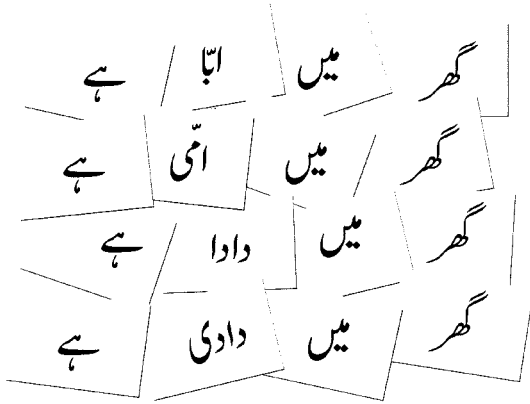 گھر میں ابّا ہے
گھر میں امّی ہے
گھر میں دادا ہے
گھر میں دادی ہے